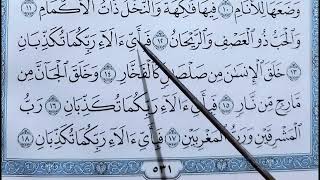 وَضَعَهَا لِلْأَنَامِ ١٠ فِيهَا فَاكِهَةٌ وَالنَّخْلُ ذَاتُ الْأَكْمَامِ ١١
وَالْحَبُّ ذُو الْعَصْفِ وَالرَّيْحَانُ ١٢ فَبِأَيِّ ءَالَاءِ رَبِّكُمَا تُكَذِّبَانِ
١٣ خَلَقَ الْإِنسَانَ مِن صَلْصَالٍ كَالْفَخَّارِ ١٤ وَخَلَقَ الْجَانَّ مِن
مَّارِجٍ مِّن نَّارٍ ١٥ فَبِأَيِّ ءَالَاءِ رَبِّكُمَا تُكَذِّبَانِ ١٦ رَبُّ
الْمَشْرِقَيْنِ وَرَبُّ الْمَغْرِبَيْنِ ١٧ فَبِأَيِّ ءَالَاءِ رَبِّكُمَا تُكَذِّبَانِ ١٨
٥٣١